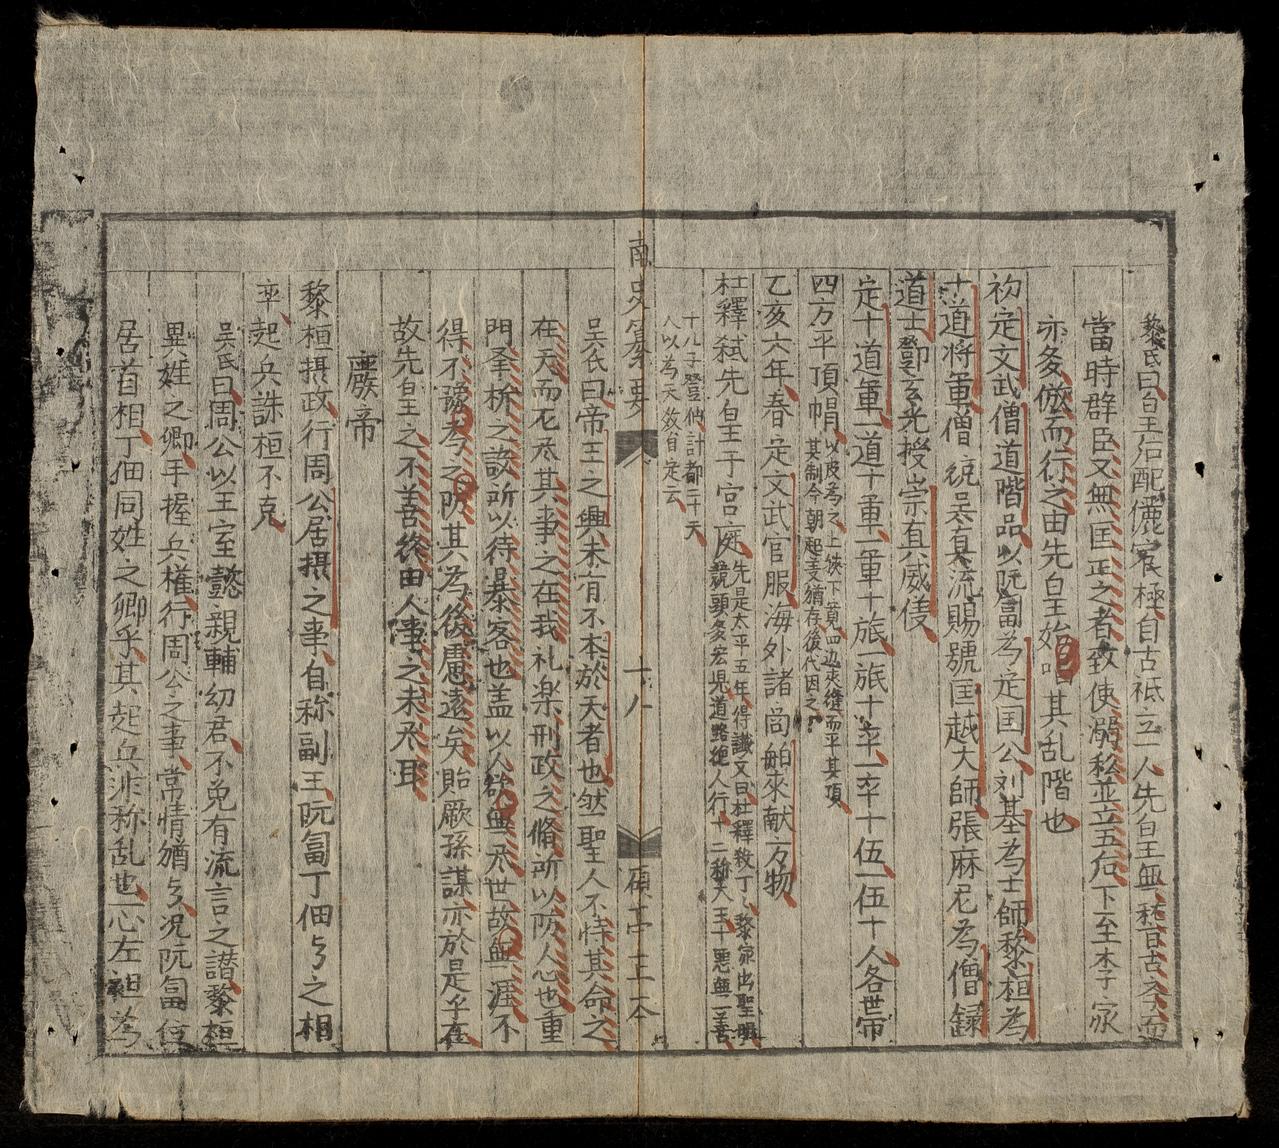 黎氏曰皇后配儷宸極自古祗立一人先皇無稽古
當時群臣又無匡正之者致使溺私並立五后下至李家
亦多倣而行之由先皇始唱其乱階也
初定文武僧道階品以阮匐為定国公刘基為士師黎桓為
十道将軍僧統吴真流賜號匡越大師張麻尼為僧錄
道士鄧玄光授崇真威儀
定十道軍一道十軍一軍十旅一旅十卒一卒十伍一伍十人各世帶
四方平頂帽以皮為之上狹下寬四边夹縫而平其頂
其制今朝起義猶存後代因之
乙亥六年春定文武官服海外諸啇舶來献方物
杜釋弑先皇于宮庭先是太平五年得讖文曰杜釋殺丁丁黎家出聖明
競頭多宏児道路絕人行十二称大王十惡無一善
十八子登仙計都二十天
人以為天数自定云
南史纂要
十八
碩亭正本
吴氏曰帝王之興未有不本於天者也然聖人不恃其命之
在天而必尽其事之在我礼楽刑政之脩所以防人心也重
門擊柝之設所以待暴客也盖以人欲無尽世故無涯不
得不豫為之防其為後慮遠矣貽厥孫謀亦於是乎在
故先皇之不善終由人事之未尽耳
廢帝
黎桓摂政行周公居摂之事自称副王阮匐丁佃与之相
率起兵誅桓不克
吴氏曰周公以王室懿親輔幼君不免有流言之譖黎桓
異姓之卿手握兵權行周公之事常情猶与况阮匐位
居首相丁佃同姓之卿乎其起兵非称乱也一心左袒為